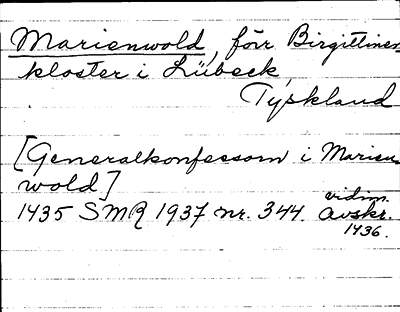 Marienwold, förr Birgittiner-
kloster i Lübeck,
Tyskland
[Generalkonfessorn i Marien-
wold]
1435 SMR 1937 nr. 344. vidim. avskr.
1436.